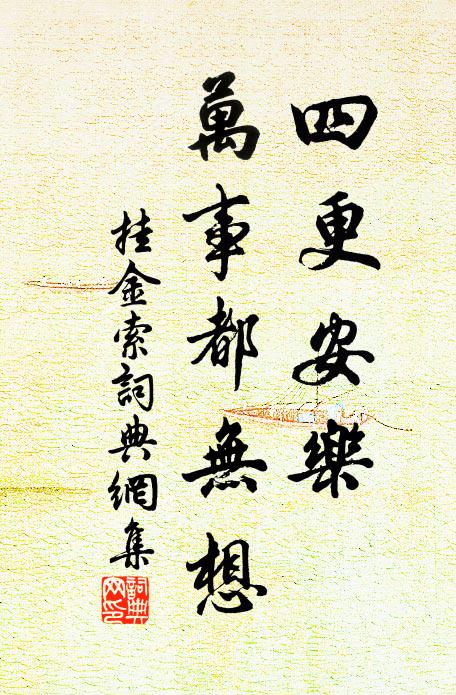 四更安樂
萬事都無想
挂金索詞典網集
詞典网印